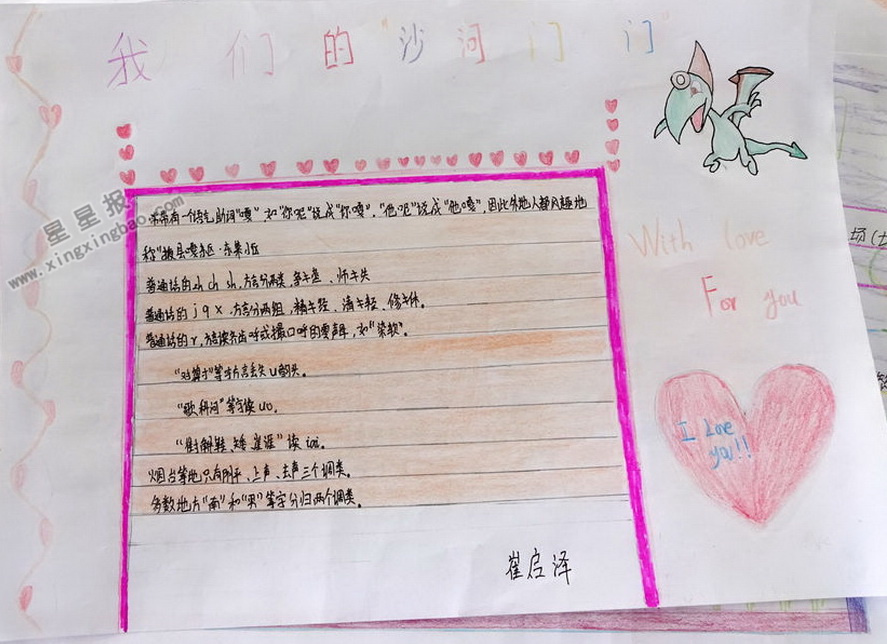 我们的"沙河门门"
常带有一个语气助词"嘎"如"你呢"说成"你嘎","他呢"说成"他嘎",因此外地人都风趣地
称"掖县嘎
普通话的zh ch sh,方言分两类,争≠蒸、师≠失
普通话的j q x,方言分两组,精≠经、清≠轻、修≠休。
普通话的r,方言读齐齿呼或撮口呼的零声母,如"染软"。
"对算寸"等字方言丢失u韵头。
"歌科问"等字读uo。
"街解鞋、矮崖涯"读iai。
烟台等地只有阴平、上声、去声三个调类。
多数地方"南"和"男"等字分归两个调类。
崔启泽
With love
For you
I Love
you!!
星星报
www.xingxingbao.com
场